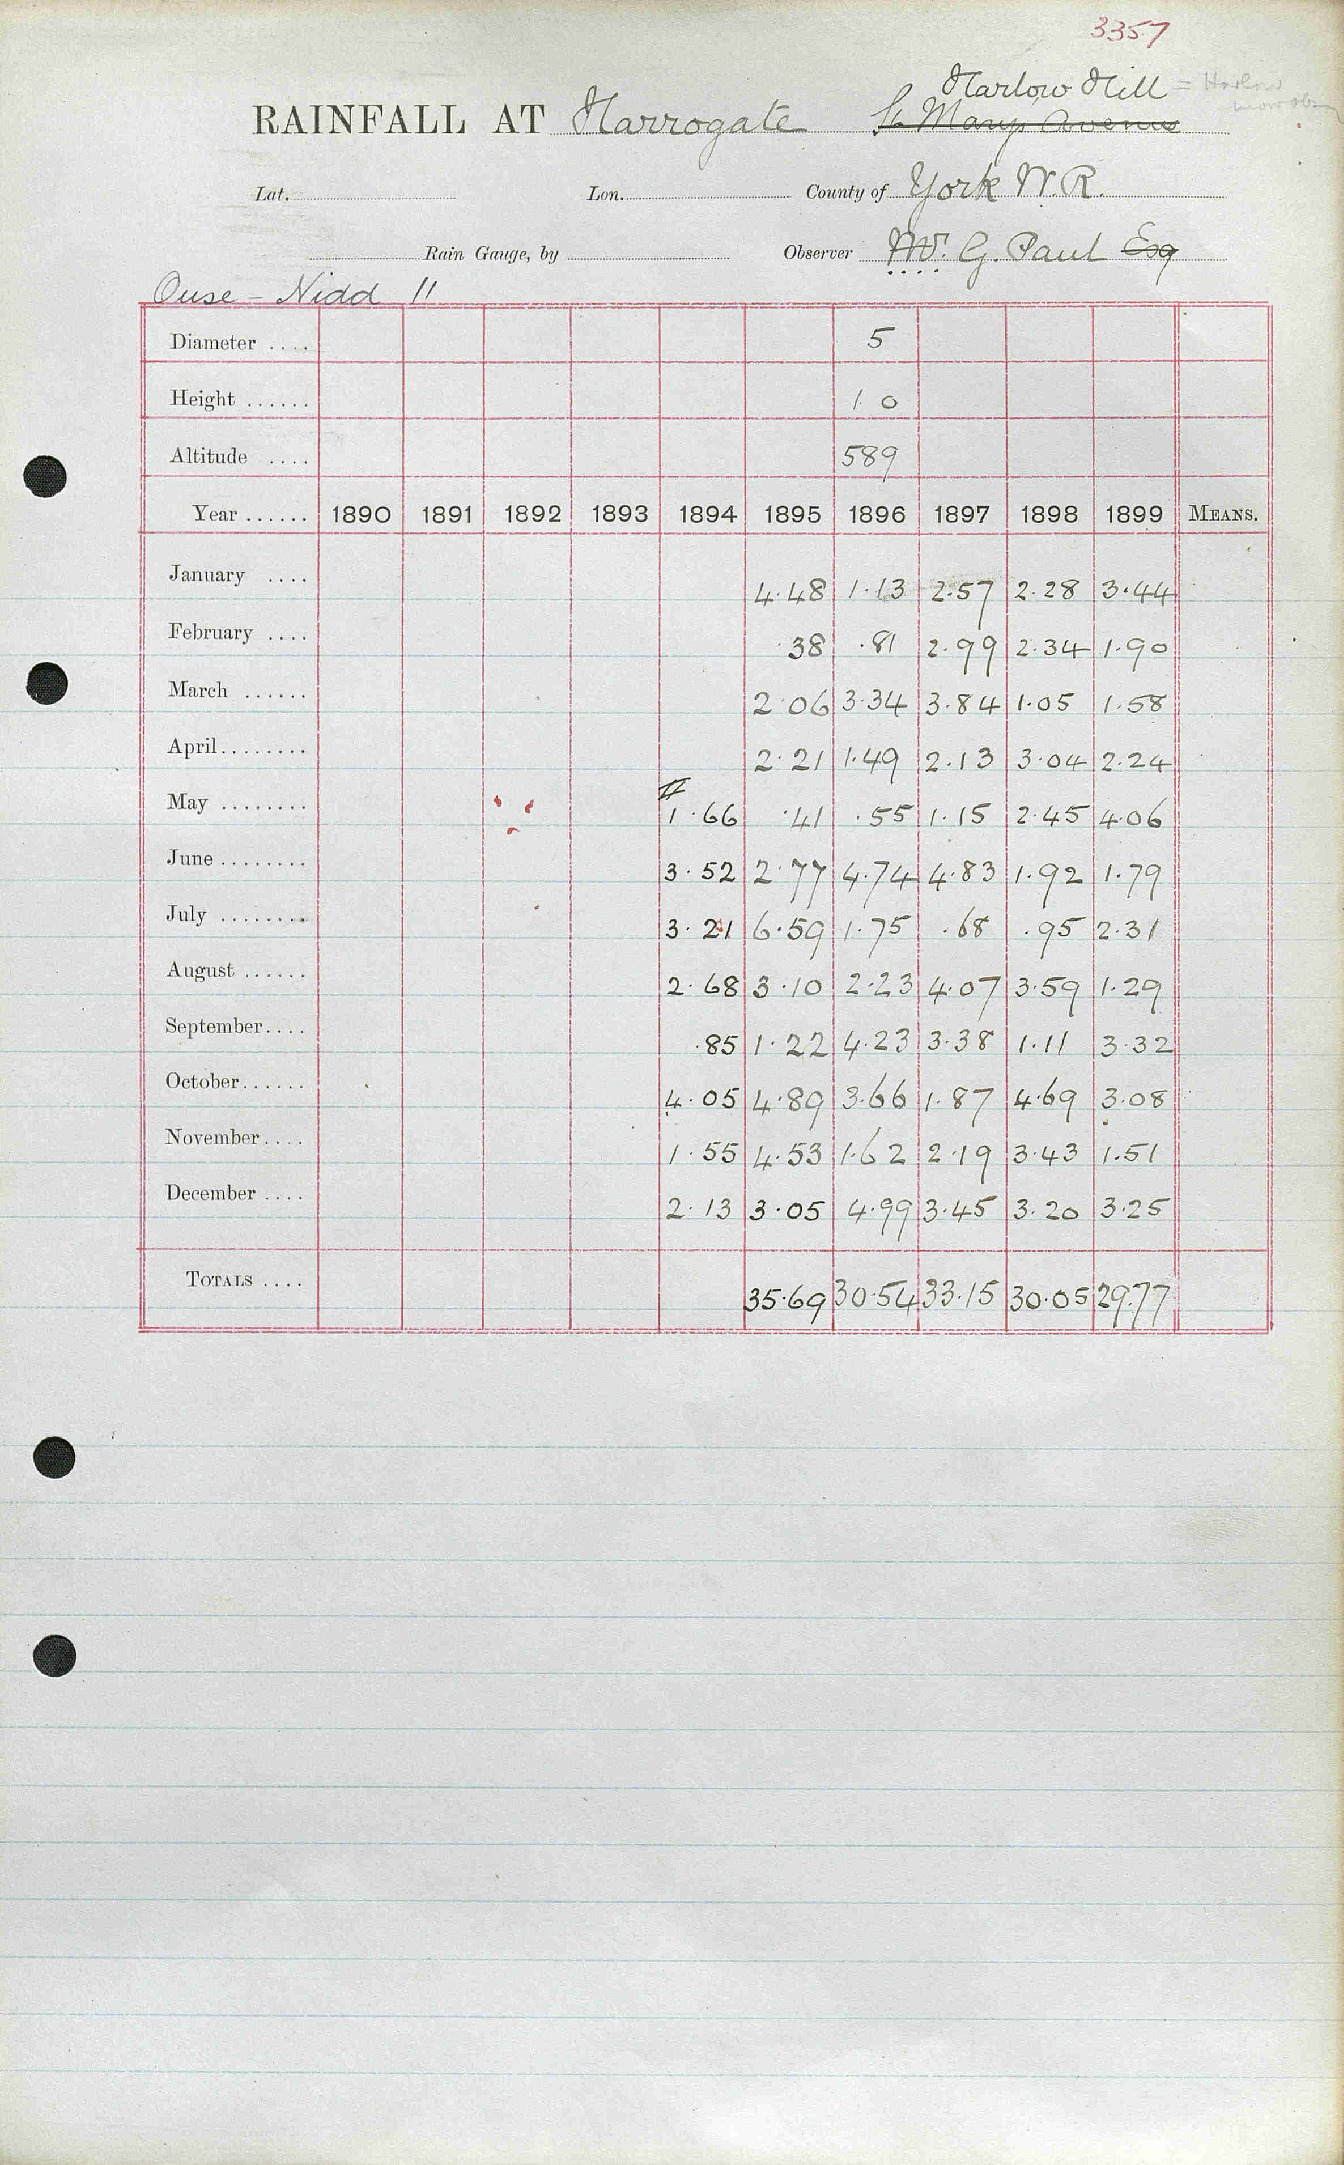 3357
Harlow Hill = Harlow
RAINFALL AT Harrogate St Mary's Avenue
Lat. Lon. County of York W.R.
Rain Gauge, by Observer Mr. G. Paul Esq
Ouse - Nidd 11
Diameter .... 5
Height ...... 1 0
Altitude .... 589
Year ...... 1890 1891 1892 1893 1894 1895 1896 1897 1898 1899 MEANS.
January .... 4.48 1.13 2.57 2.28 3.44
February .... .38 .81 2.99 2.34 1.90
March ...... 2.06 3.34 3.84 1.05 1.58
April........ 2.21 1.49 2.13 3.04 2.24
May ........ # 1.66 .41 .55 1.15 2.45 4.06
June ........ 3.52 2.77 4.74 4.83 1.92 1.79
July ........ 3.21 6.59 1.75 .68 .95 2.31
August ...... 2.68 3.10 2.23 4.07 3.59 1.29
September.... .85 1.22 4.23 3.38 1.11 3.32
October...... 4.05 4.89 3.66 1.87 4.69 3.08
November.... 1.55 4.53 1.62 2.19 3.43 1.51
December .... 2.13 3.05 4.99 3.45 3.20 3.25
TOTALS .... 35.69 30.54 33.15 30.05 29.77